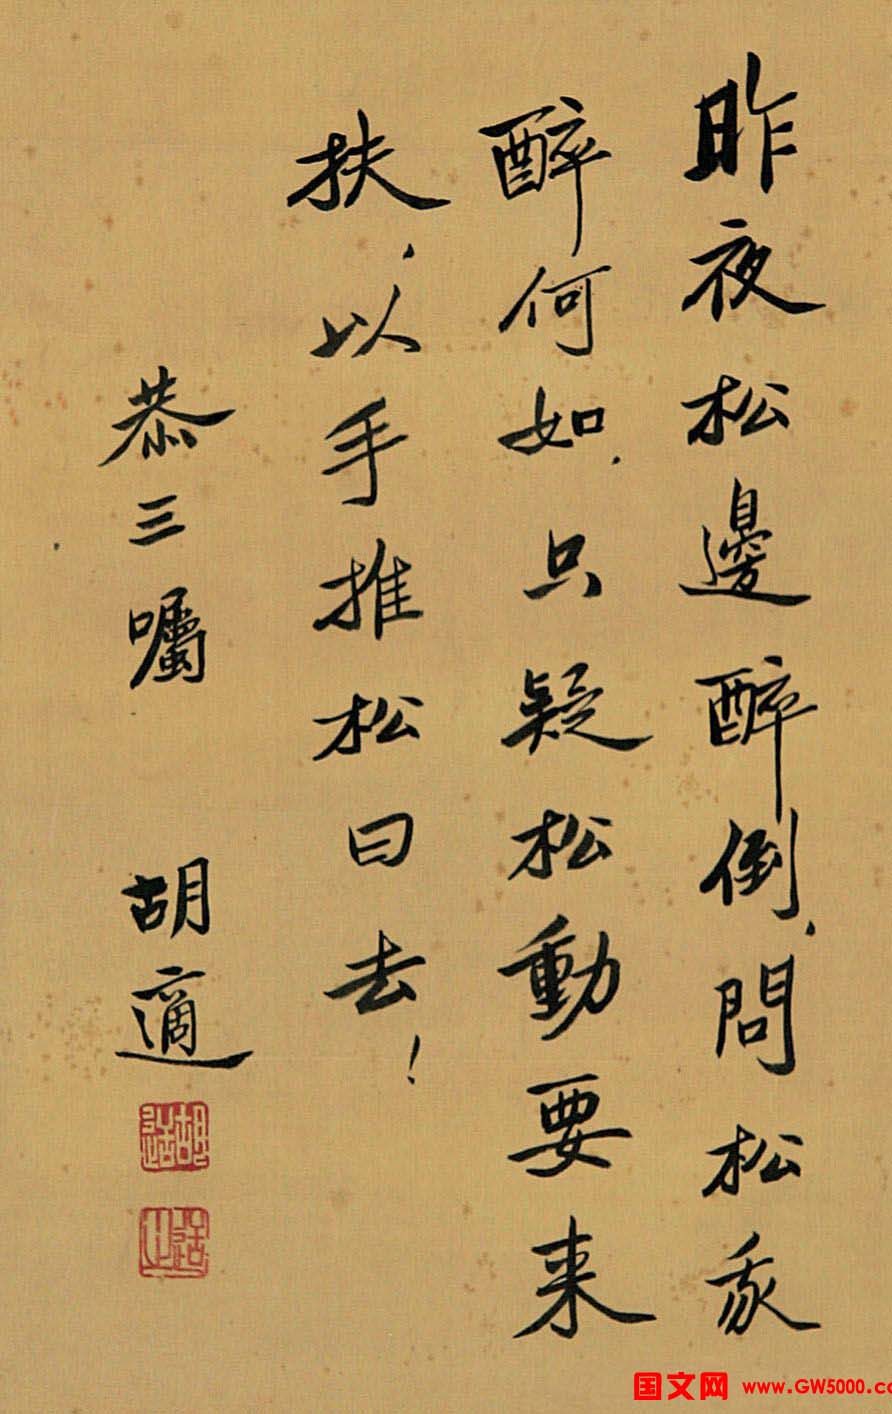 昨夜松邊醉倒、問松我
醉何如、只疑松動要来
扶、以手推松曰去！
恭三囑
胡適
胡適
適之
国文网 www.GW5000.co